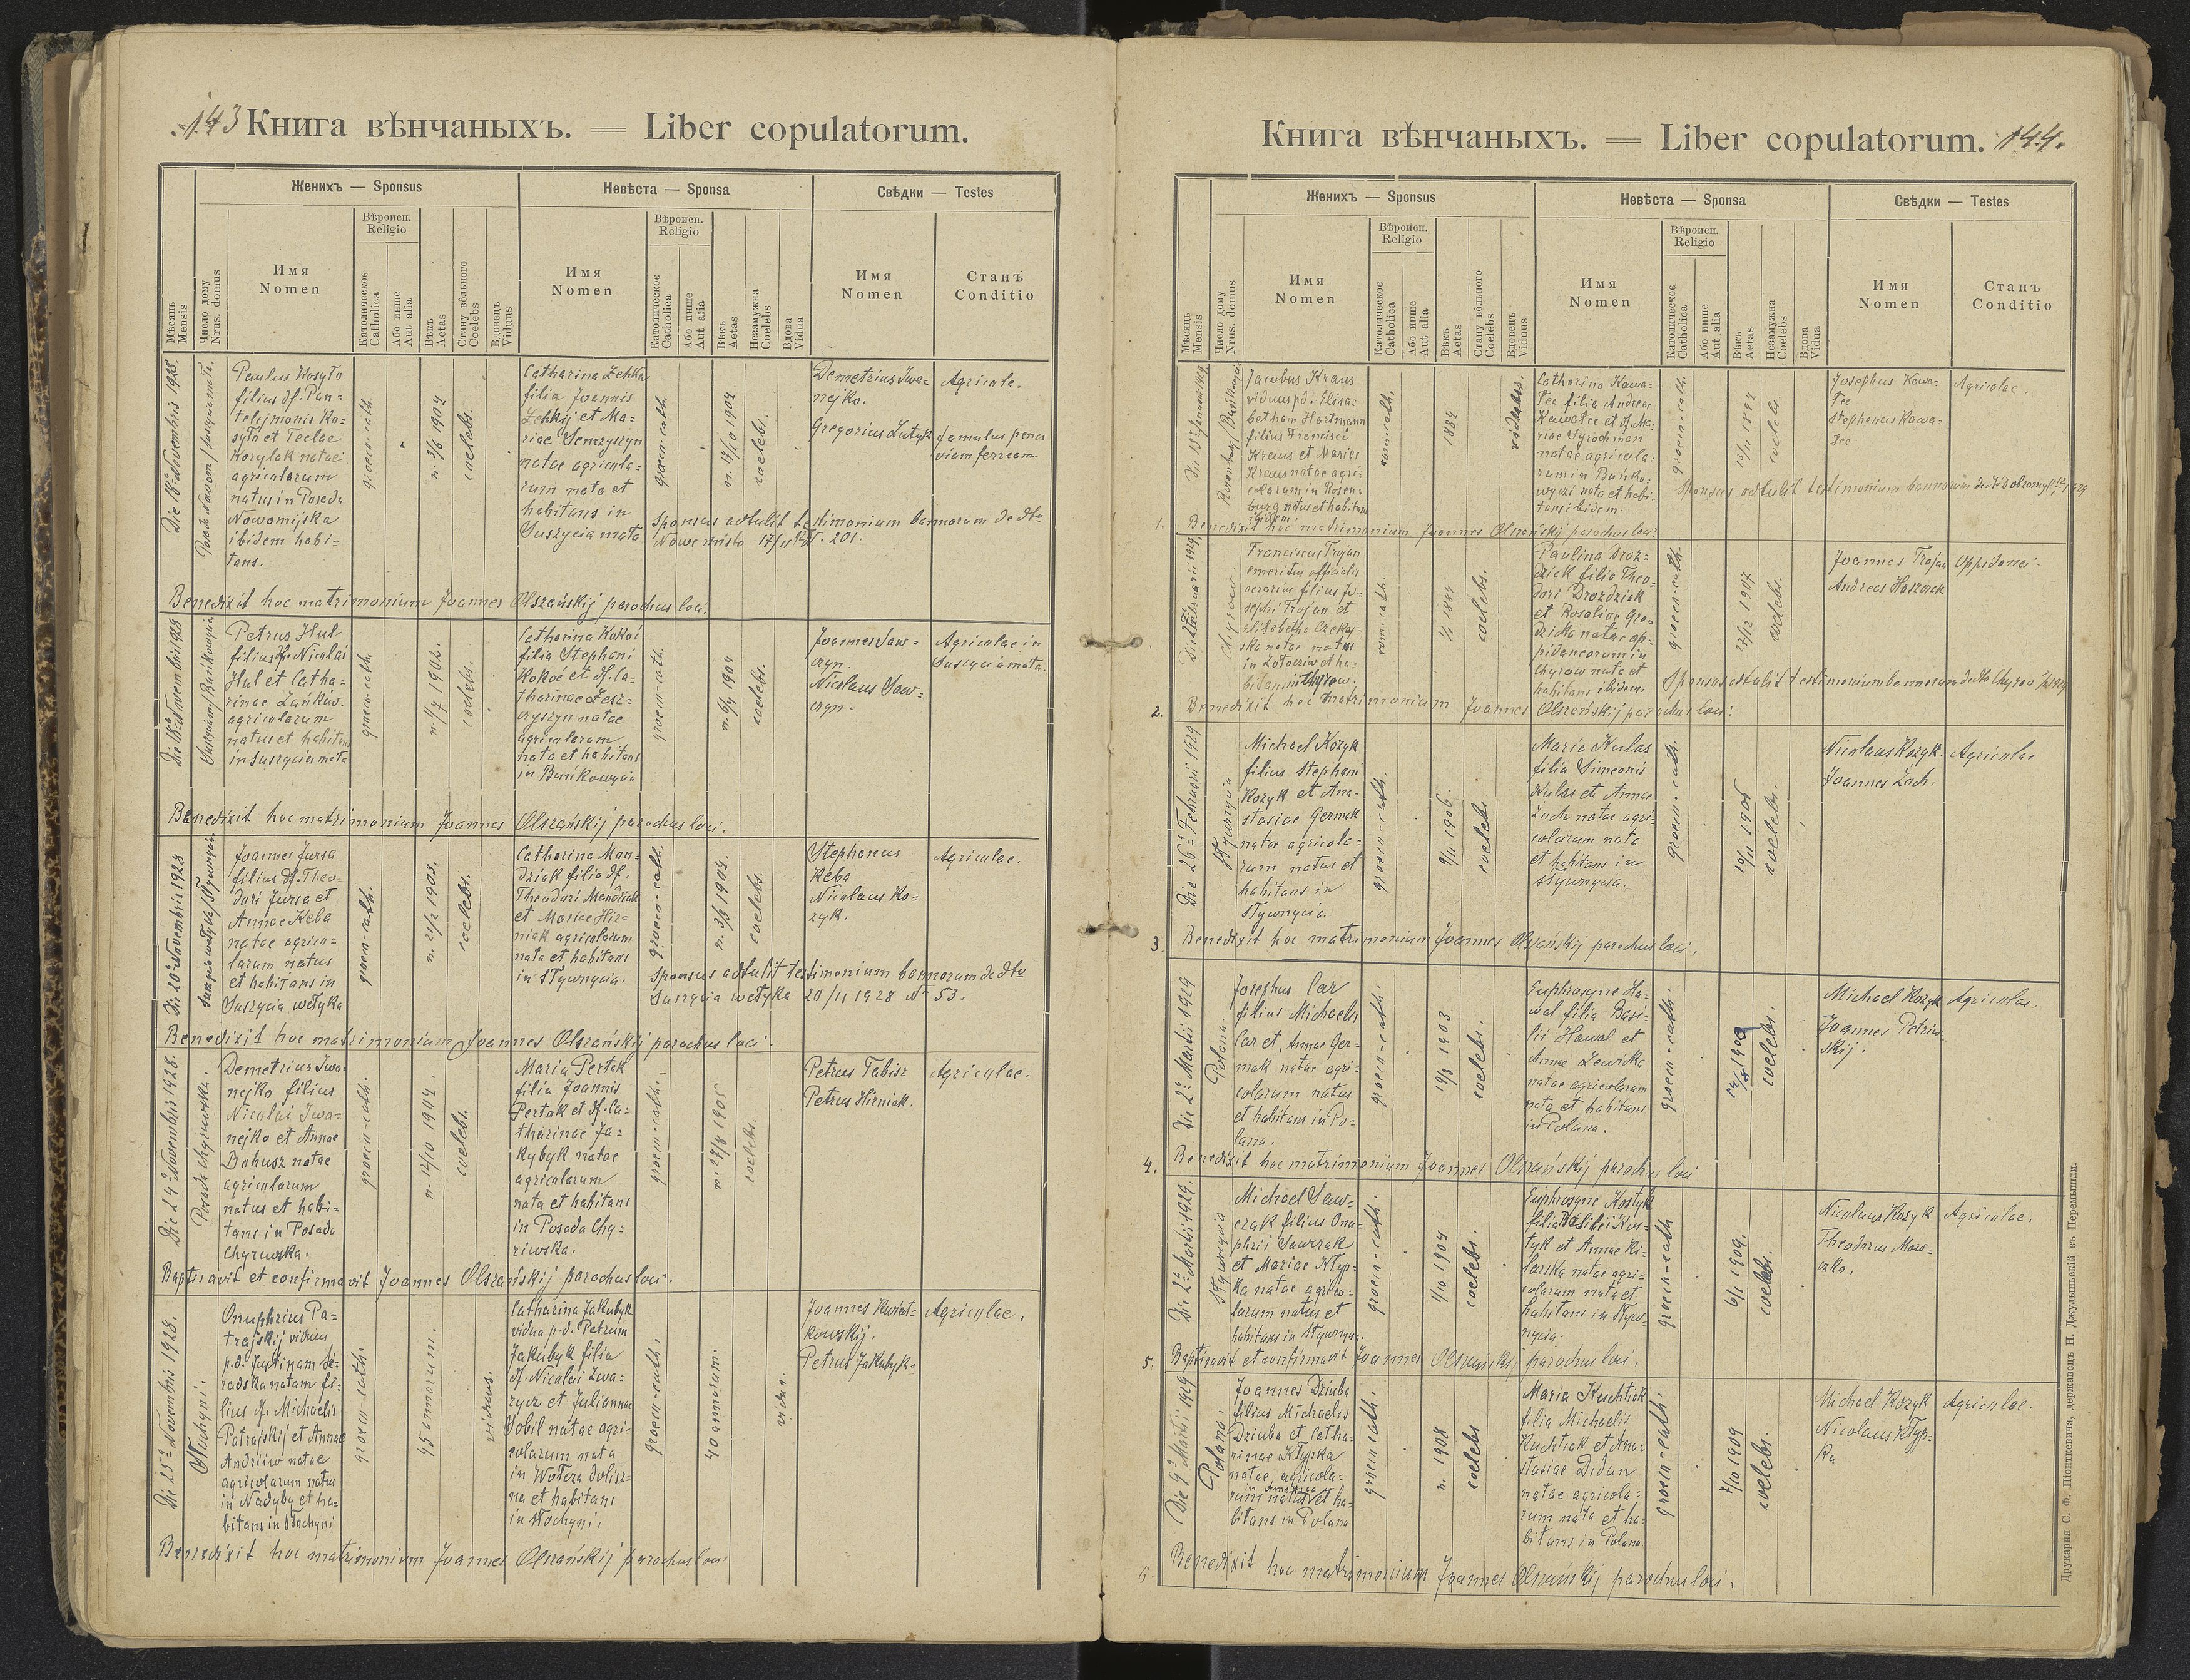 143 Книга вѣнчаныхъ. = Liber copulatorum.
Женихъ — Sponsus
Невѣста — Sponsa
Свѣдки — Testes
Мѣсяць
Mensis
Число дому
Nrus. domus
Имя
Nomen
Вѣроисп.
Religio
Католическое
Catholica
Або инше
Aut alia
Вѣкъ
Aetas
Стану вôльного
Coelebs
Вдовець
Viduus
Имя
Nomen
Вѣроисп.
Religio
Католическое
Catholica
Або инше
Aut alia
Вѣкъ
Aetas
Незамужна
Coelebs
Вдова
Vidua
Имя
Nomen
Станъ
Conditio
Die 18ª Novembris 1928.
Paulus Kosyło
filius df. Pan=
telejmonis Ko=
syło et Teclae
Korylak natae
agricolarum
natus in Posada
Nowomijska
ibidem habi=
tans.
graeco-cath.
coelebs.
Catharina Zehka
filia Joannis
Zehkij et Ma=
riae Senczyszyn
natae agricola=
rum nata et
habitans in
Suszycia mała
graeco-cath.
n. 17/10 1904
coelebs.
Demetrius Iwa=
nejko.
Gregorius Lutyk
Agricola.
famulus penes
viam ferream.
Sponsus adtulit testimonium bannorum de dto
Nowe miasto 17/11 Nr. 201.
Benedixit hoc matrimonium Joannes Olszańskij parochus loci.
Die 18ª Novembris 1928
Petrus Hul
filius df. Nicolai
Hul et Catha=
rinae Łańków.
agricolarum
natus et habitans
in Suszycia mała
graeco-cath.
n. 1/7 1902.
coelebs.
Catharina Kokoć
filia Stephani
Kokoć et df. Ca=
tharinae Lesz=
czyszyn natae
agricolarum
nata et habitans
in Bańkowycia
graeco-cath.
coelebs.
Joannes Saw=
czyn.
Nicolaus Saw=
czyn.
Agricolae in
Suszycia mała.
Benedixit hoc matrimonium Joannes Olszańskij parochus loci.
Die 20ª Novembris 1928
Suszycia wełyka / Stywnycia
Joannes Jursa
filius df. Theo=
dori Jursa et
Annae Keba
natae agrico=
larum natus
et habitans in
Suszycia wełyka
graeco-cath.
coelebs.
Catharina Man=
dziak filia df.
Theodori Mandziak
et Mariae Hir=
niak agricolarum
nata et habitans
in Stywnycia.
graeco-cath.
coelebs.
Stephanus
Keba
Nicolaus Ko=
zyk.
Agricolae.
Sponsus adtulit testimonium bannorum de dto
Suszycia wełyka 20/11 1928 Nr 53.
Benedixit hoc matrimonium Joannes Olszańskij parochus loci.
Die 24ª Novembris 1928.
Posada Chyrowska.
Demetrius Iwa=
nejko filius
Nicolai Iwa=
nejko et Annae
Bohusz natae
agricolarum
natus et habi=
tans in Posada
Chyrowska.
graeco-cath.
n. 14/10 1904.
coelebs.
Maria Pertak
filia Joannis
Pertak et df. Ca=
tharinae Ja=
kybyk natae
agricolarum
nata et habitans
in Posada Chy=
riwska.
graeco-cath.
n. 27/8 1905
coelebs.
Petrus Tabisz
Petrus Hirniak.
Agricolae.
Baptisavit et confirmavit Joannes Olszańskij parochus loci.
Die 25ª Novembris 1928.
Onuphrius Pa=
trajskij viduus
p.d. Justinam Si=
radska natam fi=
lius df. Michaelis
Patrajskij et Annae
Andriiw natae
agricolarum natus
in Nadyby et ha=
bitans in Słochyni
graeco-cath.
45 annorum.
viduus.
Catharina Jakubyk
vidua p.d. Petrum
Jakubyk filia
df. Nicolai Iwa=
zycz et Juliannae
Sobil natae agri=
colarum nata
in Wołcza dolisz=
na et habitans
in Słochyni.
graeco-cath.
40 annorum.
vidua.
Joannes Kwiat=
kowskij.
Petrus Jakubyk.
Agricolae.
Benedixit hoc matrimonium Joannes Olszańskij parochus loci
Книга вѣнчаныхъ. = Liber copulatorum. 144.
Женихъ — Sponsus
Невѣста — Sponsa
Свѣдки — Testes
Мѣсяць
Mensis
Число дому
Nrus. domus
Имя
Nomen
Вѣроисп.
Religio
Католическое
Catholica
Або инше
Aut alia
Вѣкъ
Aetas
Стану вôльного
Coelebs
Вдовець
Viduus
Имя
Nomen
Вѣроисп.
Religio
Католическое
Catholica
Або инше
Aut alia
Вѣкъ
Aetas
Незамужна
Coelebs
Вдова
Vidua
Имя
Nomen
Станъ
Conditio
Jacobus Kraus
viduus p.d. Elisa=
betham Hartmann
filius Francisci
Kraus et Mariae
Kraus natae agri=
colarum in Rosen=
burg natus et habitans
ibidem.
rom-cath.
1884
viduus.
Catharina Kawa=
lec filia Andreae
Kawalec et df. Ma=
riae Syrochman
natae agricola=
rum in Bańko=
wyczi nata et habi=
tans ibidem.
graeco-cath.
coelebs.
Josephus Kowa=
lec
Stephanus Kawa=
lec
Agricolae.
1. Benedixit hoc matrimonium Joannes Olszańskij parochus loci.
Chyrow.
Franciscus Trojan
emeritus officialis
filius Jo=
sephi Trojan et
Elisabethae
natae natus
et ha=
bitans in Chyrow.
rom. cath.
coelebs.
Paulina Droz=
dziak filia Theo=
dori Drozdziak
et Rosaliae Gro=
dzicka natae op=
pidaneorum in
Chyrow nata et
habitans ibidem
graeco-cath.
24/12 1907
coelebs.
Joannes Trojan
Andreas Haszczak
Oppidanei.
2. Benedixit hoc matrimonium Joannes Olszańskij parochus loci.
Die 26ª Februarii 1929
Stywnycia
Michael Kozyk
filius Stephani
Kozyk et Ana=
stasiae Germak
natae agricola=
rum natus et
habitans in
Stywnycia.
graeco-cath.
9/11 1906.
coelebs
Maria Kulas
filia Simeonis
Kulas et Annae
Zach natae agri=
colarum nata
et habitans in
Stywnycia.
graeco-cath.
coelebs.
Nicolaus Kozyk.
Joannes Zach.
Agricolae
3. Benedixit hoc matrimonium Joannes Olszańskij parochus loci.
Die 2ª Martii 1929
Polana.
Josephus Car
filius Michaelis
Car et Annae Ger=
mak natae agri=
colarum natus
et habitans in Po=
lana.
graeco-cath.
19/3 1903
coelebs.
Euphrosyne Ha=
wal filia Basi=
lii Hawal et
Annae Lewicka
natae agricolarum
nata et habitans
in Polana.
graeco-cath.
coelebs.
Michael Kozyk
Joannes Petriw=
skij.
Agricolae.
4. Benedixit hoc matrimonium Joannes Olszańskij parochus loci
Die 2ª Martii 1929.
Stywnycia
Michael Saw=
czak filius Onu=
phrii Sawczak
et Mariae Kłyp=
ka natae agrico=
larum natus et
habitans in Stywnycia.
graeco-cath.
1/10 1904
coelebs.
Euphrosyne Kostyk
filia Basilii Kos=
tyk et Annae Ki=
larska natae agri=
colarum nata et
habitans in Styw=
nycia.
graeco-cath
6/1 1909.
coelebs.
Nicolaus Kozyk
Theodorus
Agricolae.
5. Baptisavit et confirmavit Joannes Olszańskij parochus loci.
Die 9ª Martii 1929
Polana.
Joannes Dziuba
filius Michaelis
Dziuba et Catha=
rinae Kłypka
natae agricola=
rum natus in America et ha=
bitans in Polana
graeco cath.
n. 1908
coelebs
Maria Kuchtiak
filia Michaelis
Kuchtiak et Ana=
stasiae Didan
natae agricola=
rum nata et ha=
bitans in Polana.
graeco-cath.
7/10 1909
coelebs.
Michael Kozyk
Nicolaus Kłyp=
ka
Agricolae.
6. Benedixit hoc matrimonium Joannes Olszańskij parochus loci.
Друкарня С. Ф. Піонткевича, державець Н. Джулынській въ Перемышли.